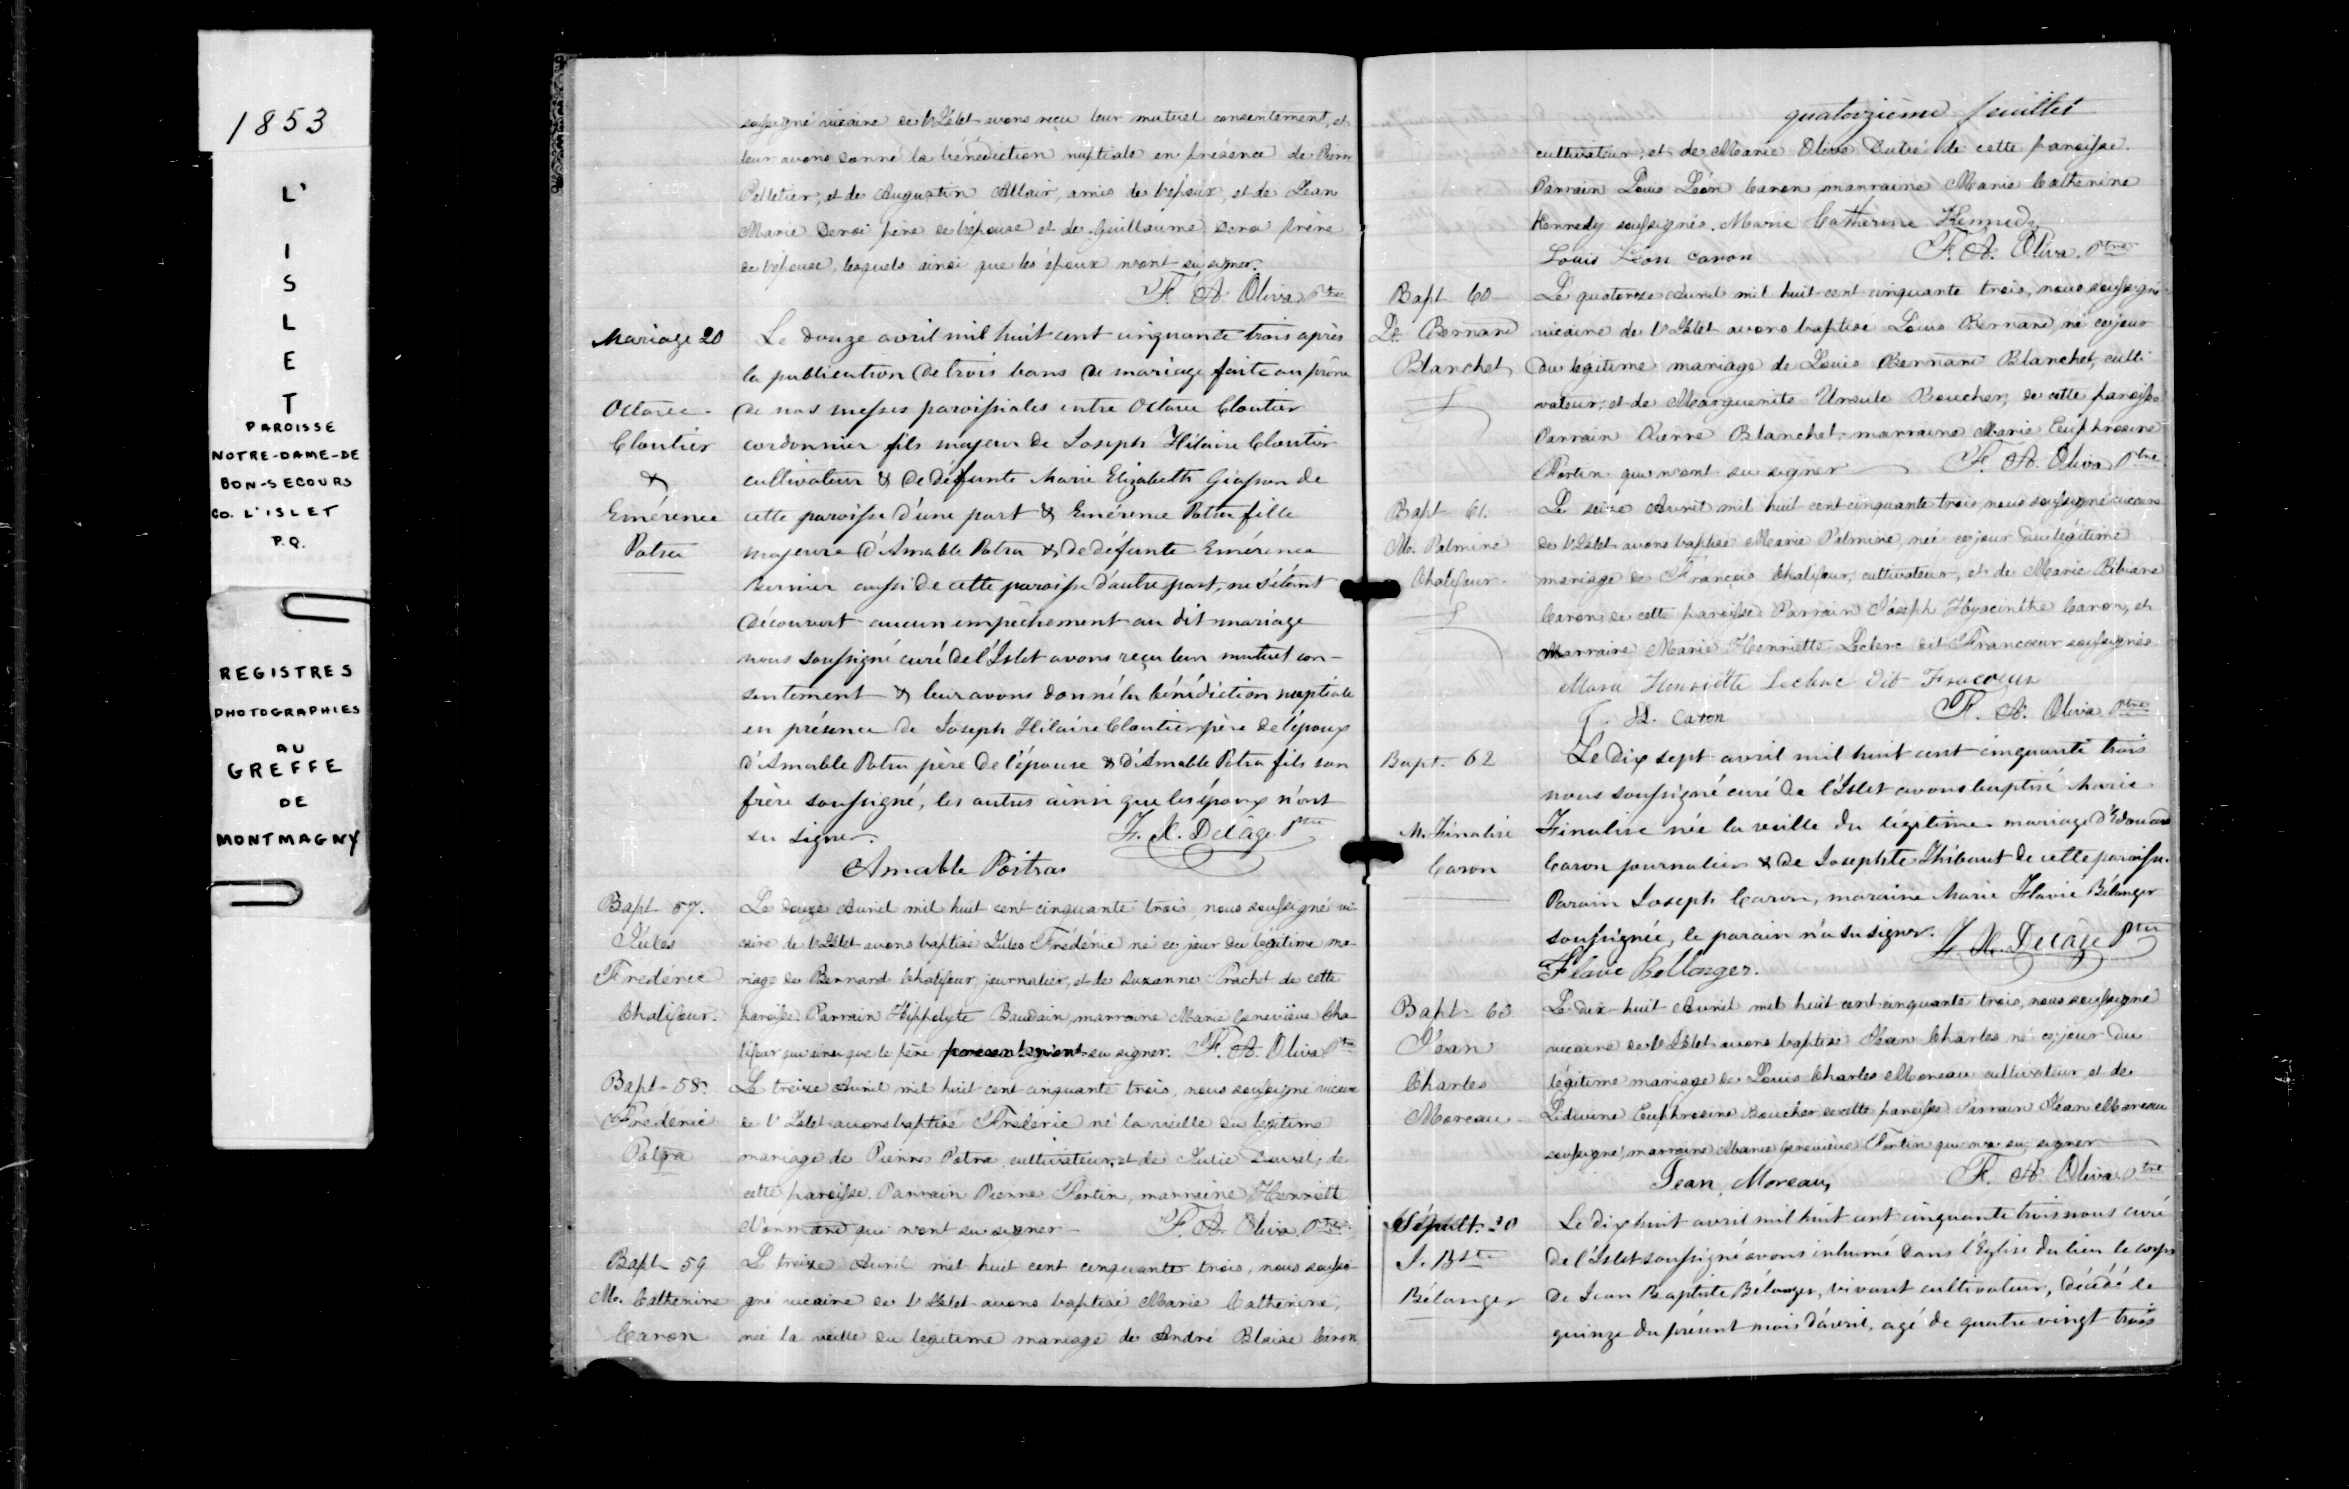 1853
L'
I
S
L
E
T
PAROISSE
NOTRE-DAME-DE
BON-SECOURS
CO. L'ISLET
P.Q.
REGISTRES
PHOTOGRAPHIES
AU
GREFFE
DE
MONTMAGNY
soussigné vicaire de l'Islet avons reçu leur mutuel consentement, et
leur avons donné la bénédiction nuptiale en présence de Pierre
Pelletier, et de Augustin Allair, amis de l'époux, et de Jean
Marie père de l'épouse et de Guillaume frère
de l'épouse, lesquels ainsi que les époux n'ont su signer.
F. A. Oliva Ptre
Mariage 20
Octave
Cloutier
&
Emérence
Patra
Le douze avril mil huit cent cinquante trois après
la publication de trois bans de mariage faite au prône
de nos messes paroissiales entre Octave Cloutier
cordonnier fils majeur de Joseph Hilaire Cloutier
cultivateur & de défunte Marie Elizabeth Giasson de
cette paroisse d'une part & Emérence Patra fille
majeure d'Amable Patra & de défunte Emérence
Bernier aussi de cette paroisse d'autre part, ne s'étant
découvert aucun empêchement au dit mariage
nous soussigné curé de l'Islet avons reçu leur mutuel con-
sentement & leur avons donné la bénédiction nuptiale
en présence de Joseph Hilaire Cloutier père de l'époux
d'Amable Patra père de l'épouse & d'Amable Patra fils son
frère soussigné, les autres ainsi que les époux n'ont
su signer. F. X. Delâge Ptre
Amable Poitras
Bapt 57.
Jules
Frédéric
Chalifour.
Le douze Avril mil huit cent cinquante trois, nous soussigné vi-
caire de l'Islet avons baptisé Jules Frédéric né ce jour du légitime ma-
riage de Bernard Chalifour, journalier, et de Suzanne Prachet de cette
paroisse. Parrain Hippolyte Baudoin, marraine Marie Geneviève Cha-
lifour qui ainsi que le père su signer. F. A. Oliva Ptre
Bapt - 58.
Frédéric
Patra
Le treize Avril mil huit cent cinquante trois, nous soussigné vicaire
de l'Islet avons baptisé Frédéric né la veille du légitime
mariage de Pierre Patra, cultivateur, et de Julie Duval, de
cette paroisse. Parrain Pierre Fortin, marraine Henriett
Normand qui n'ont su signer - F. A. Oliva. Ptre
Bapt - 59
M. Catherine
Caron
Le treize Avril mil huit cent cinquante trois, nous soussi-
gné vicaire de l'Islet avons baptisé Marie Catherine,
née la veille du légitime mariage de André Blaise Caron
quatorzième feuillet
cultivateur, et de Marie Olive Dutré de cette paroisse.
Parrain Louis Léon Caron, marraine Marie Catherine
Kennedy soussignés. Marie Catherine Kennedy
Louis Léon Caron F. A. Oliva. Ptre
Bapt 60
Ls. Bernard
Blanchet
Le quatorze Avril mil huit cent cinquante trois, nous soussigné
vicaire de l'Islet avons baptisé Louis Bernard, né ce jour
du légitime mariage de Louis Bernard Blanchet, culti-
vateur, et de Marguerite Ursule Boucher, de cette paroisse
Parrain Pierre Blanchet, marraine Marie Euphrosine
Fortin qui n'ont su signer F. A. Oliva Ptre
Bapt 61.
M. Palmire
Chalifour
Le seize Avril mil huit cent cinquante trois, nous soussigné vicaire
de l'Islet avons baptisé Marie Palmire, née ce jour du légitime
mariage de François Chalifour, cultivateur, et de Marie Bibiane
Caron, de cette paroisse Parrain Joseph Hyacinthe Caron, et
Marraine Marie Henriette Leclerc dit Francoeur soussignés
Marie Henriette Leclerc dit Fracoeur
J. H. Caron F. A. Oliva Ptre
Bapt. 62
M. Finalise
Caron
Le dix sept avril mil huit cent cinquante trois
nous soussigné curé de l'Islet avons baptisé Marie
Finalise née la veille du légitime mariage d'Edouard
Caron journalier & de Josephte Thibaut de cette paroisse.
Parain Joseph Caron, maraine Marie Flavie Bélanger
soussignée, le parain n'a su signer. F. X. Delâge Ptre
Flavie Bellanger.
Bapt - 63
Jean
Charles
Moreau
Le dix-huit Avril mil huit cent cinquante trois, nous soussigné
vicaire de l'Islet avons baptisé Jean Charles né ce jour du
légitime mariage de Louis Charles Moreau cultivateur, et de
Ledivine Euphrosine Boucher de cette paroisse Parrain Jean Moreau
soussigné, marraine Marie Geneviève Fortin qui n'a su signer
Jean Moreau, F. A. Oliva Ptre
Sépult. 20
J. Bte
Bélanger
Le dix huit avril mil huit cent cinquante trois nous curé
de l'Islet soussigné avons inhumé dans l'Eglise du lieu le corps
de Jean Baptiste Bélanger, vivant cultivateur, décédé le
quinze du présent mois d'avril, agé de quatre vingt trois